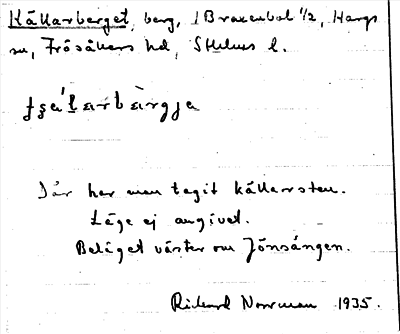 Källarberget, berg, i Braxenbol 1/2, Hargs
sn, Frösåkers hd, Sthlms l.
Där har man tagit källarsten.
Läge ej angivet.
Beläget väster om Jönsängen.
Rickard Norrman 1935.